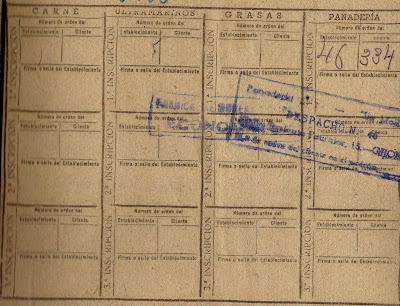 CARNE ULTRAMARINOS GRASAS PANADERÍA
Número de orden del Número de orden del Número de orden del Número de orden del
Establecimiento Cliente Establecimiento Cliente Establecimiento Cliente Establecimiento Cliente
46 334
1.ª INSCRIPCION 1.ª INSCRIPCION 1.ª INSCRIPCION 1.ª INSCRIPCION
Firma o sello del Establecimiento Firma o sello del Establecimiento Firma o sello del Establecimiento Firma o sello del Establecimiento
DESPACHO N.º 46
Número de orden del Número de orden del
Establecimiento Cliente Establecimiento Cliente
2.ª INSCRIPCION 2.ª INSCRIPCION 2.ª INSCRIPCION 2.ª INSCRIPCION
Firma o sello del Establecimiento Firma o sello del Establecimiento Firma o sello del Establecimiento Firma o sello del Establecimiento
Número de orden del Número de orden del Número de orden del Número de orden del
Establecimiento Cliente Establecimiento Cliente Establecimiento Cliente Establecimiento Cliente
3.ª INSCRIPCION 3.ª INSCRIPCION 3.ª INSCRIPCION 3.ª INSCRIPCION
Firma o sello del Establecimiento Firma o sello del Establecimiento Firma o sello del Establecimiento Firma o sello del Establecimiento